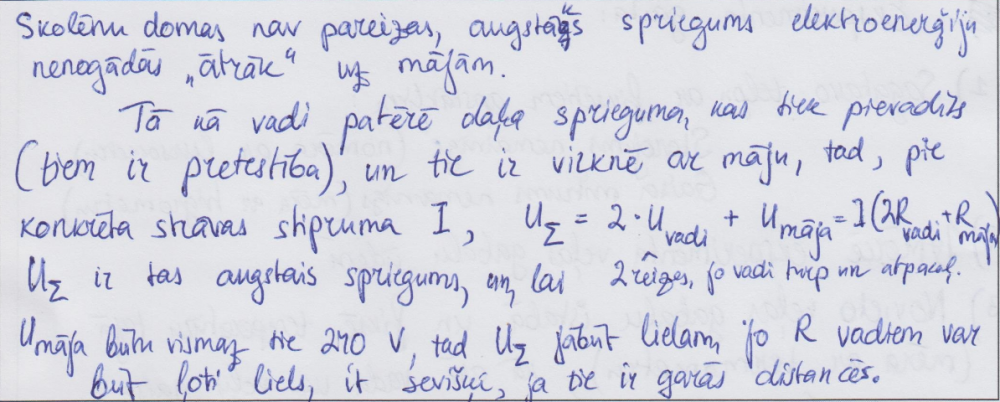 Skolēnu domas nav pareizas, augstāks spriegums elektroenerģiju
nenogādās „ātrāk“ uz mājām.
Tā kā vadi patērē daļu sprieguma, kas tiek pievadīts
(tiem ir pretestība), un tie ir virknē ar māju, tad, pie
konkrēta strāvas stipruma I, U_Σ = 2·U_vadi + U_māja = I(2R_vadi + R_māja)
U_Σ ir tas augstais spriegums, un, lai 2 reizes, jo vadi turp un atpakaļ.
U_māja būtu vismaz tie 240 V, tad U_Σ jābūt lielam, jo R vadiem var
būt ļoti liels, it sevišķi, ja tie ir garās distancēs.